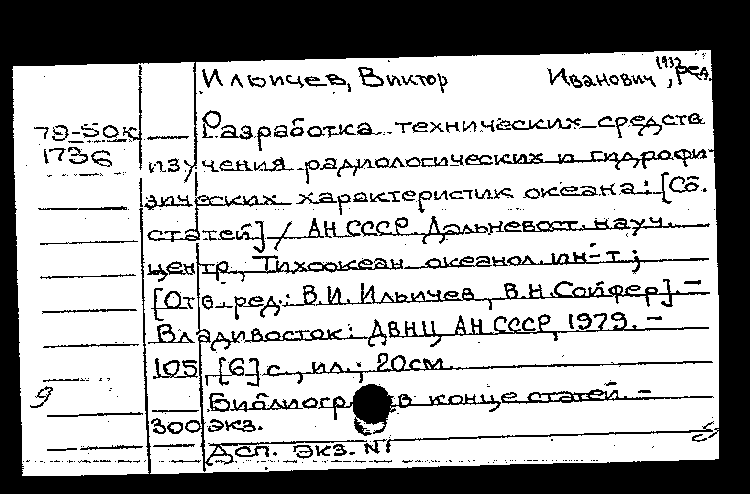 Ильичев, Виктор Иванович, 1932 ред.
79-50к Разработка технических средств
1736 изучения радиологических и гидрофи-
зических характеристик океана: [Сб.
статей] / АН СССР. Дальневост. науч.
центр, Тихоокеан. океанол. ин-т;
[Отв. ред.: В.И. Ильичев, В.Н. Сойфер]. –
Владивосток: ДВНЦ АН СССР, 1979. –
105, [6] с., ил.; 20см.
9 Библиогр в конце статей. –
300 экз.
Дсп. экз. №1